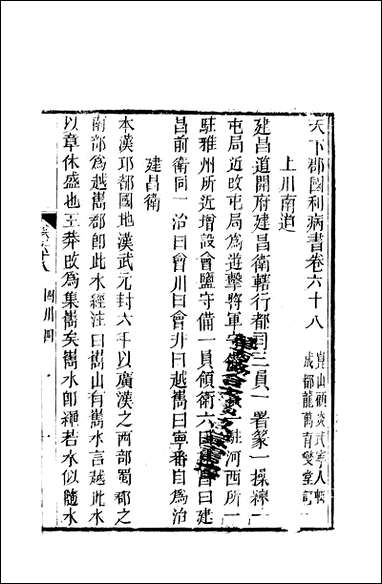 天下郡國利病書卷六十八
崑山顧炎武寧人輯
成都龍萬育燮堂訂
上川南道
建昌道開府建昌衛轄行都司三員一署篆一操練一
屯局近改屯局為遊擊將軍守 駐河西所一
駐雅州所近增設會鹽守備一員領衛六 曰建
昌前衛同一治曰會川曰會 曰越嶲曰寧番自為治
建昌衛
本漢邛都國地漢武元封六年以廣漢之西部蜀郡之
南部為越嶲郡即此水經注曰嶲山有嶲水言越此水
以章休盛也王莽改為集嶲矣嶲水即繩若水似隨水
卷六十八
四川四